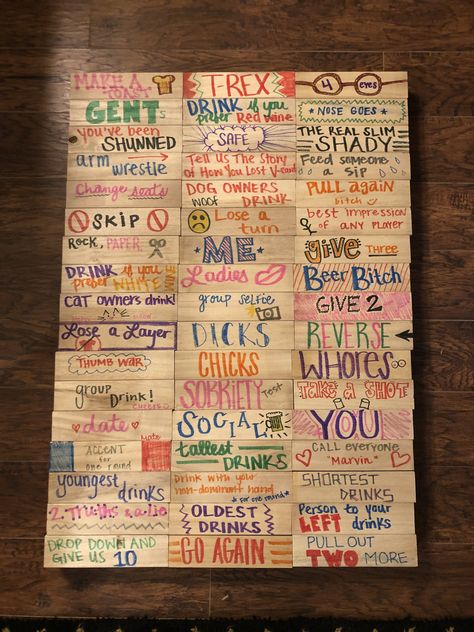 MAKE A
TOAST
T-REX
4 eyes
GENTS
DRINK if you
prefer Red Wine
NOSE GOES
you've been
SHUNNED
SAFE
THE REAL SLIM
SHADY
arm
wrestle
Tell Us The Story
of How You Lost V-card
Feed someone
a sip
Change seats
DOG OWNERS
WOOF DRINK
PULL again
bitch
SKIP
Lose a
turn
best impression
of any player
ROCK, PAPER,
ME
give THREE
DRINK if you
prefer WHITE WINE
Ladies
Beer Bitch
CAT owners drink!
group selfie
GIVE 2
Lose a Layer
DICKS
REVERSE
THUMB WAR
CHICKS
WHORES
group
Drink!
CHEERS
SOBRIETY Test
TAKE A SHOT
date
Mate
SOCIAL
YOU
ACCENT
for
one round
tallest
DRINKS
CALL everyone
"Marvin"
youngest
drinks
Drink with your
non-dominant hand
*for one round*
SHORTEST
DRINKS
2 Truths & a lie
OLDEST
DRINKS
Person to your
LEFT drinks
DROP DOWN AND
GIVE US 10
GO AGAIN
PULL OUT
TWO MORE